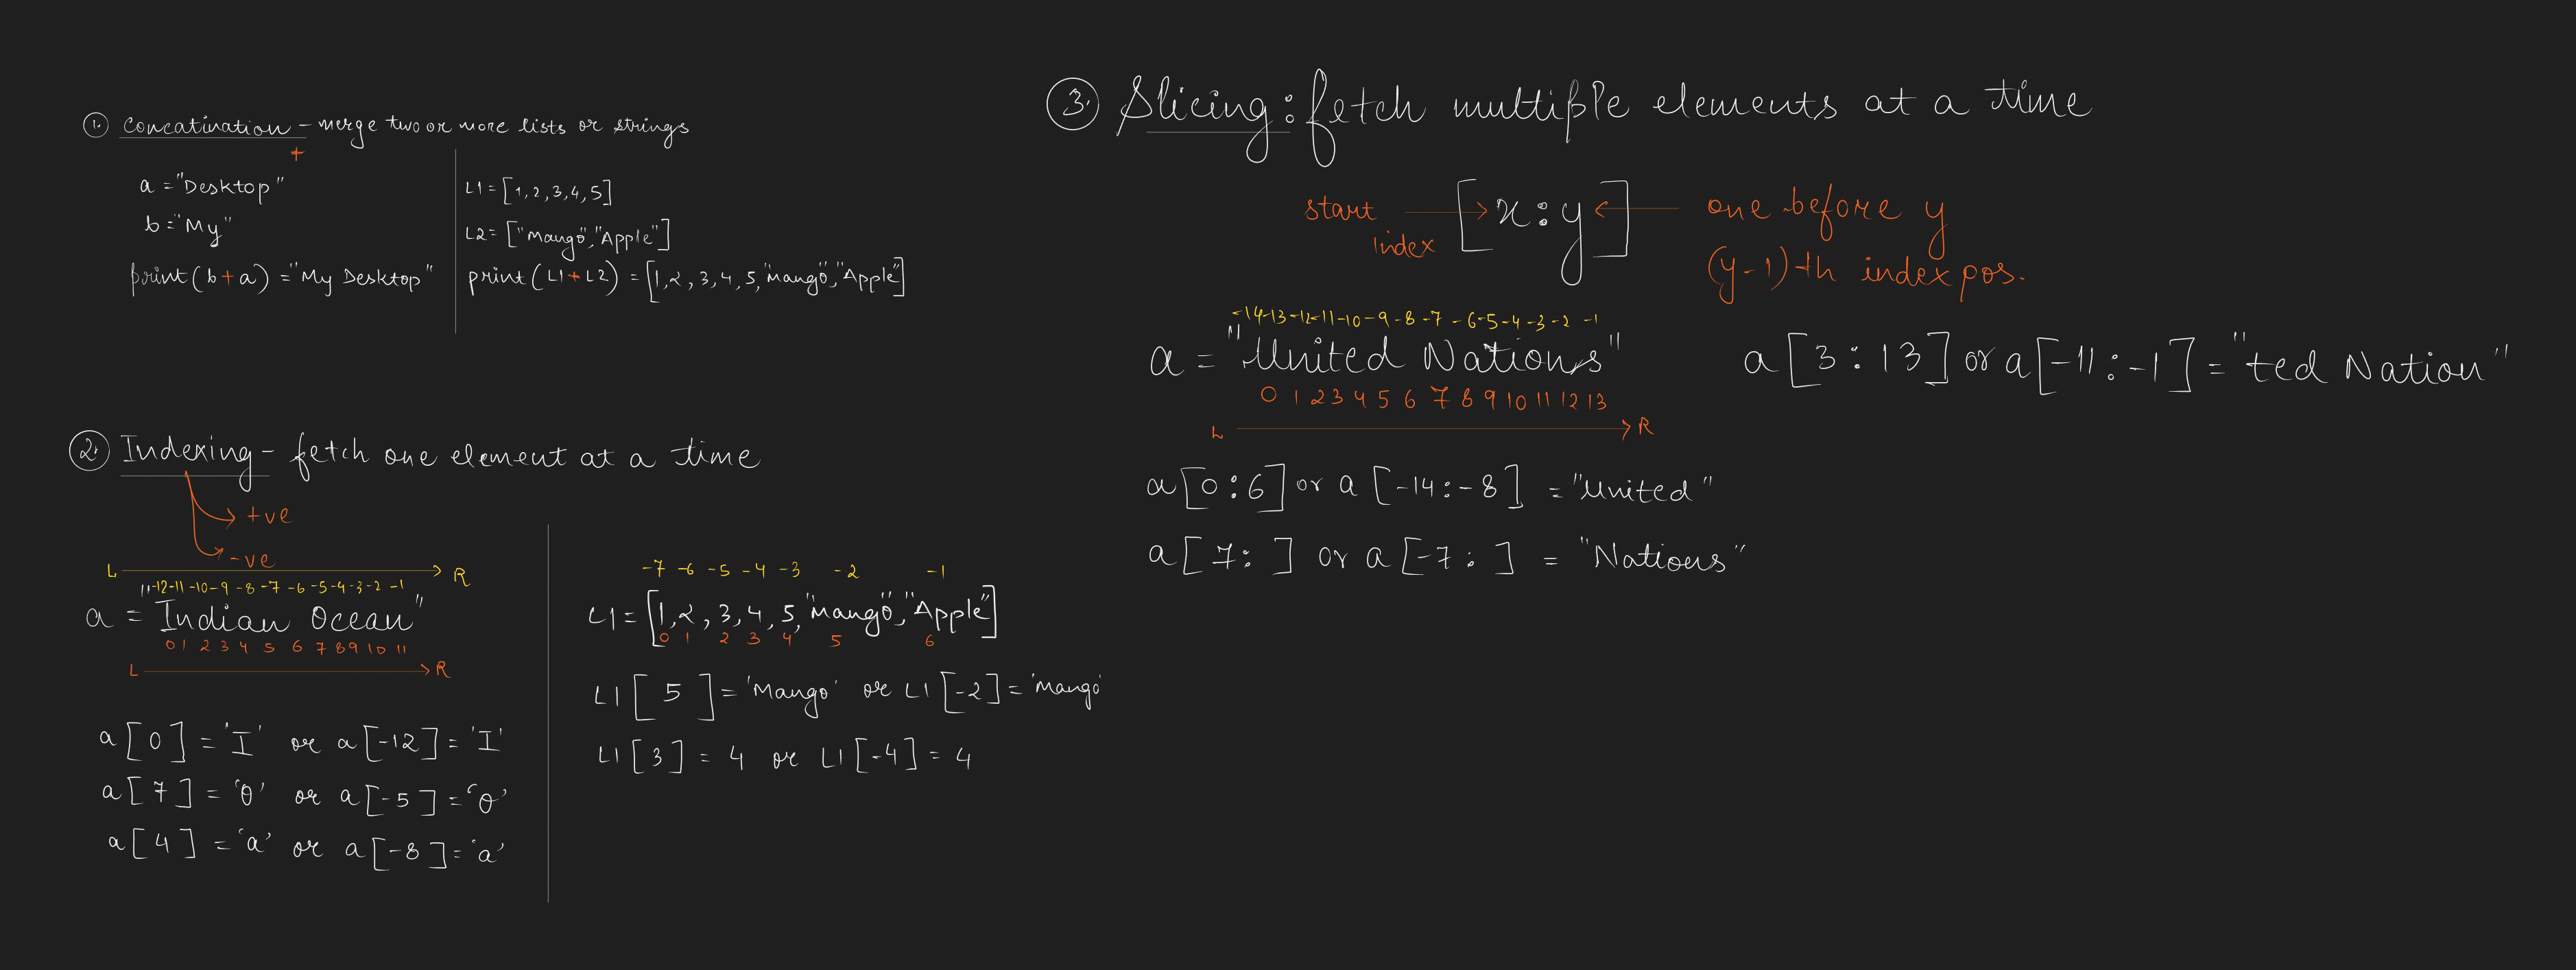 1. Concatination - merge two or more lists or strings
+
a = "Desktop"
b = "My"
print(b+a) = "My Desktop"
L1 = [1,2,3,4,5]
L2 = ["Mango","Apple"]
print(L1+L2) = [1,2,3,4,5,"Mango","Apple"]
2. Indexing - fetch one element at a time
+ve
-ve
L R
-12 -11 -10 -9 -8 -7 -6 -5 -4 -3 -2 -1
a = "Indian Ocean"
0 1 2 3 4 5 6 7 8 9 10 11
L R
a[0] = 'I' or a[-12] = 'I'
a[7] = 'O' or a[-5] = 'O'
a[4] = 'a' or a[-8] = 'a'
-7 -6 -5 -4 -3 -2 -1
L1 = [1,2,3,4,5,"Mango","Apple"]
0 1 2 3 4 5 6
L1[5] = 'Mango' or L1[-2] = 'Mango'
L1[3] = 4 or L1[-4] = 4
3. Slicing: fetch multiple elements at a time
start index [x:y] one before y
(y-1)-th index pos.
-14 -13 -12 -11 -10 -9 -8 -7 -6 -5 -4 -3 -2 -1
a = "United Nations"
0 1 2 3 4 5 6 7 8 9 10 11 12 13
L R
a[3:13] or a[-11:-1] = "ted Nation"
a[0:6] or a[-14:-8] = "United"
a[7: ] or a[-7: ] = "Nations"